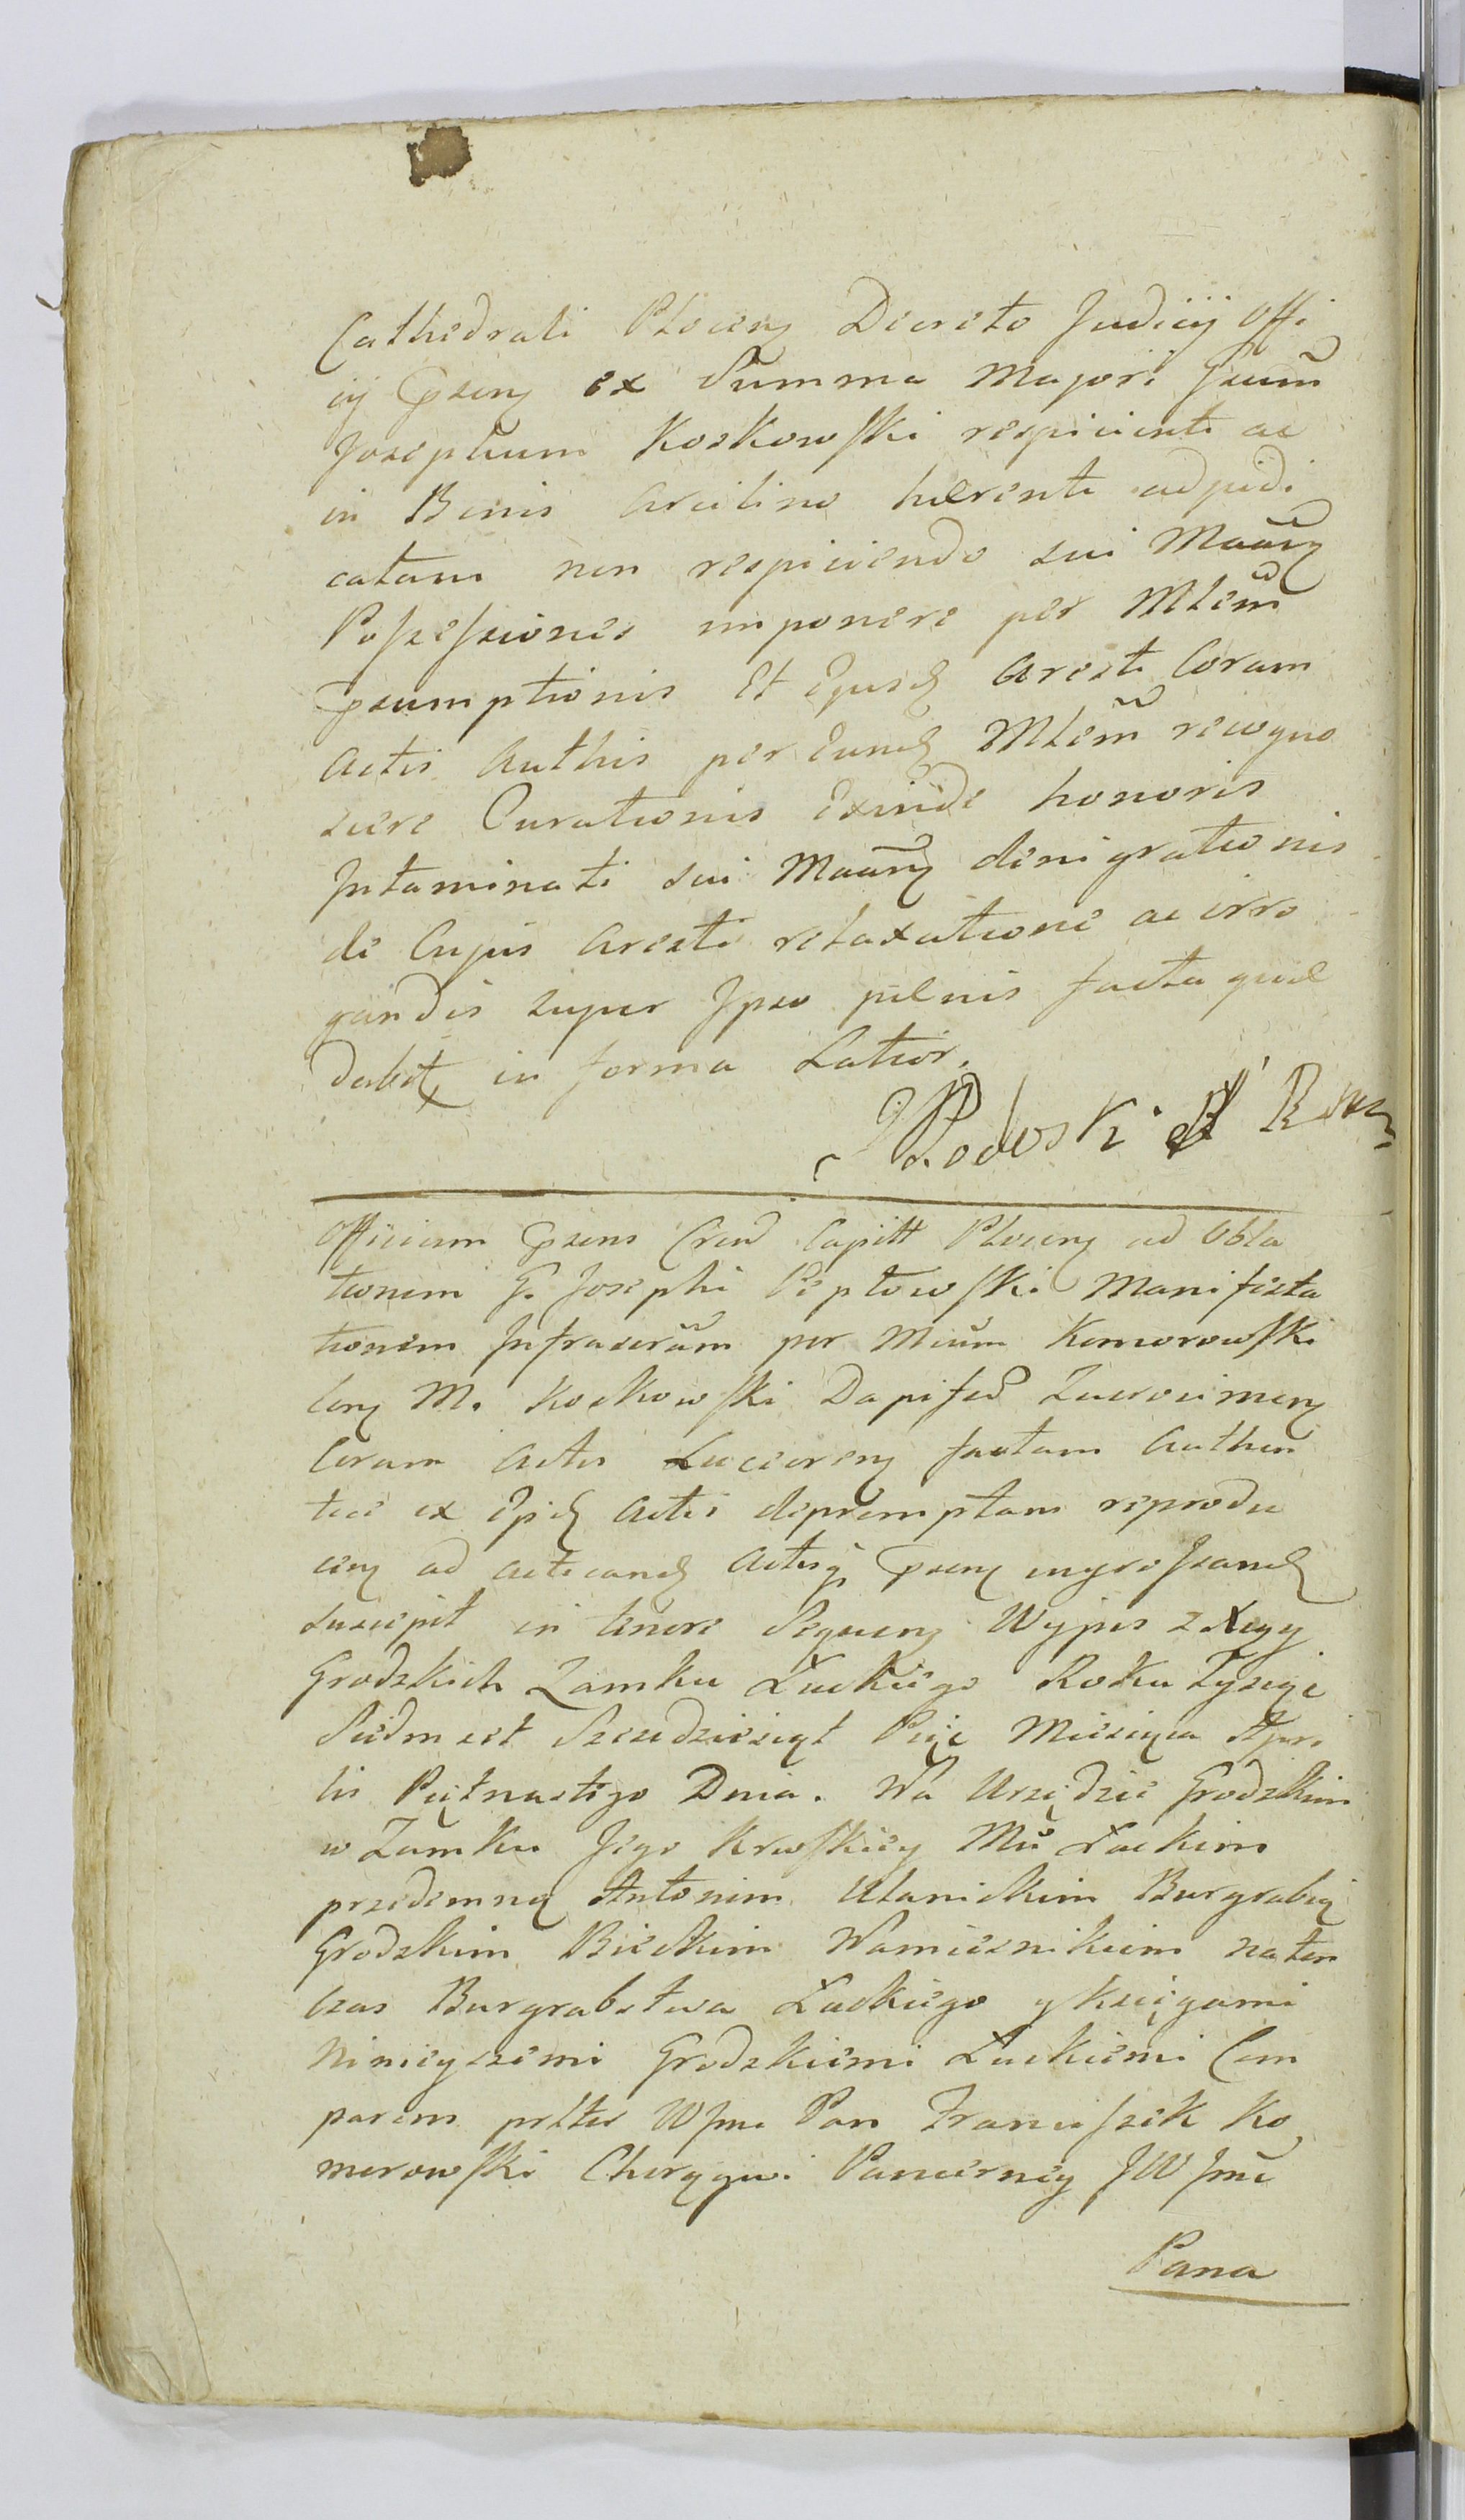 Cathedrali Plocens Decreto Judicij Offi
cij Pzens ex Summa Majori Gsum̃
Josephum Koskowski respicienti ac
in Bonis Arcilino hærenti adjudi
catam non respiciendo sui Maan̄s
Poszesziones imponere per Mlem̃
Pzumptionis Et Ejusd Aresti Coram
Actis Authis per Eund Mlem̃ recogno
scere Curationis Exinde honoris
Intaminati sui Maan̄s denigrationis
de Cujus Aresti relaxatione ac irro
gandis super Ipso pænis facta quæ
dabit in forma Latior.
Rodoski R mp
Officium Pzens Crud Capitt Plocens ad Obla
tionem G. Josephi Peptowski Manifesta
tionem Infrascrãm per Mcum Komorowski
Cons M. Koskowski Dapifed Zacrocimens
Coram Actis Luceorens factam Authen
tice ex Ijsd Actis depromptam reprodu
cens ad acticand Actisq Pzens ingroszand
suscepit in tenore Sequens Wypis z Xięg
Grodzkich Zamku Łuckiego Roku Tysiąc
Siedmset Szesdziesiąt Pięc Miesiąca Apri
lis Piętnastego Dnia. Na Urzędzie Grodzkim
w Zamku Jego Krwskiey Mci Łuckim
przedemną Antonim Ulanickim Burgrabią
Grodzkim Bieckim Namiesnikiem naten
czas Burgrabstwa Łuckiego y Księgami
Ninieyszemi Grodzkiemi Łuckiemi Com
parens prltr WJmc Pan Franciszek Ko
morowski Chorągwi Pancerney JWJmc
Pana